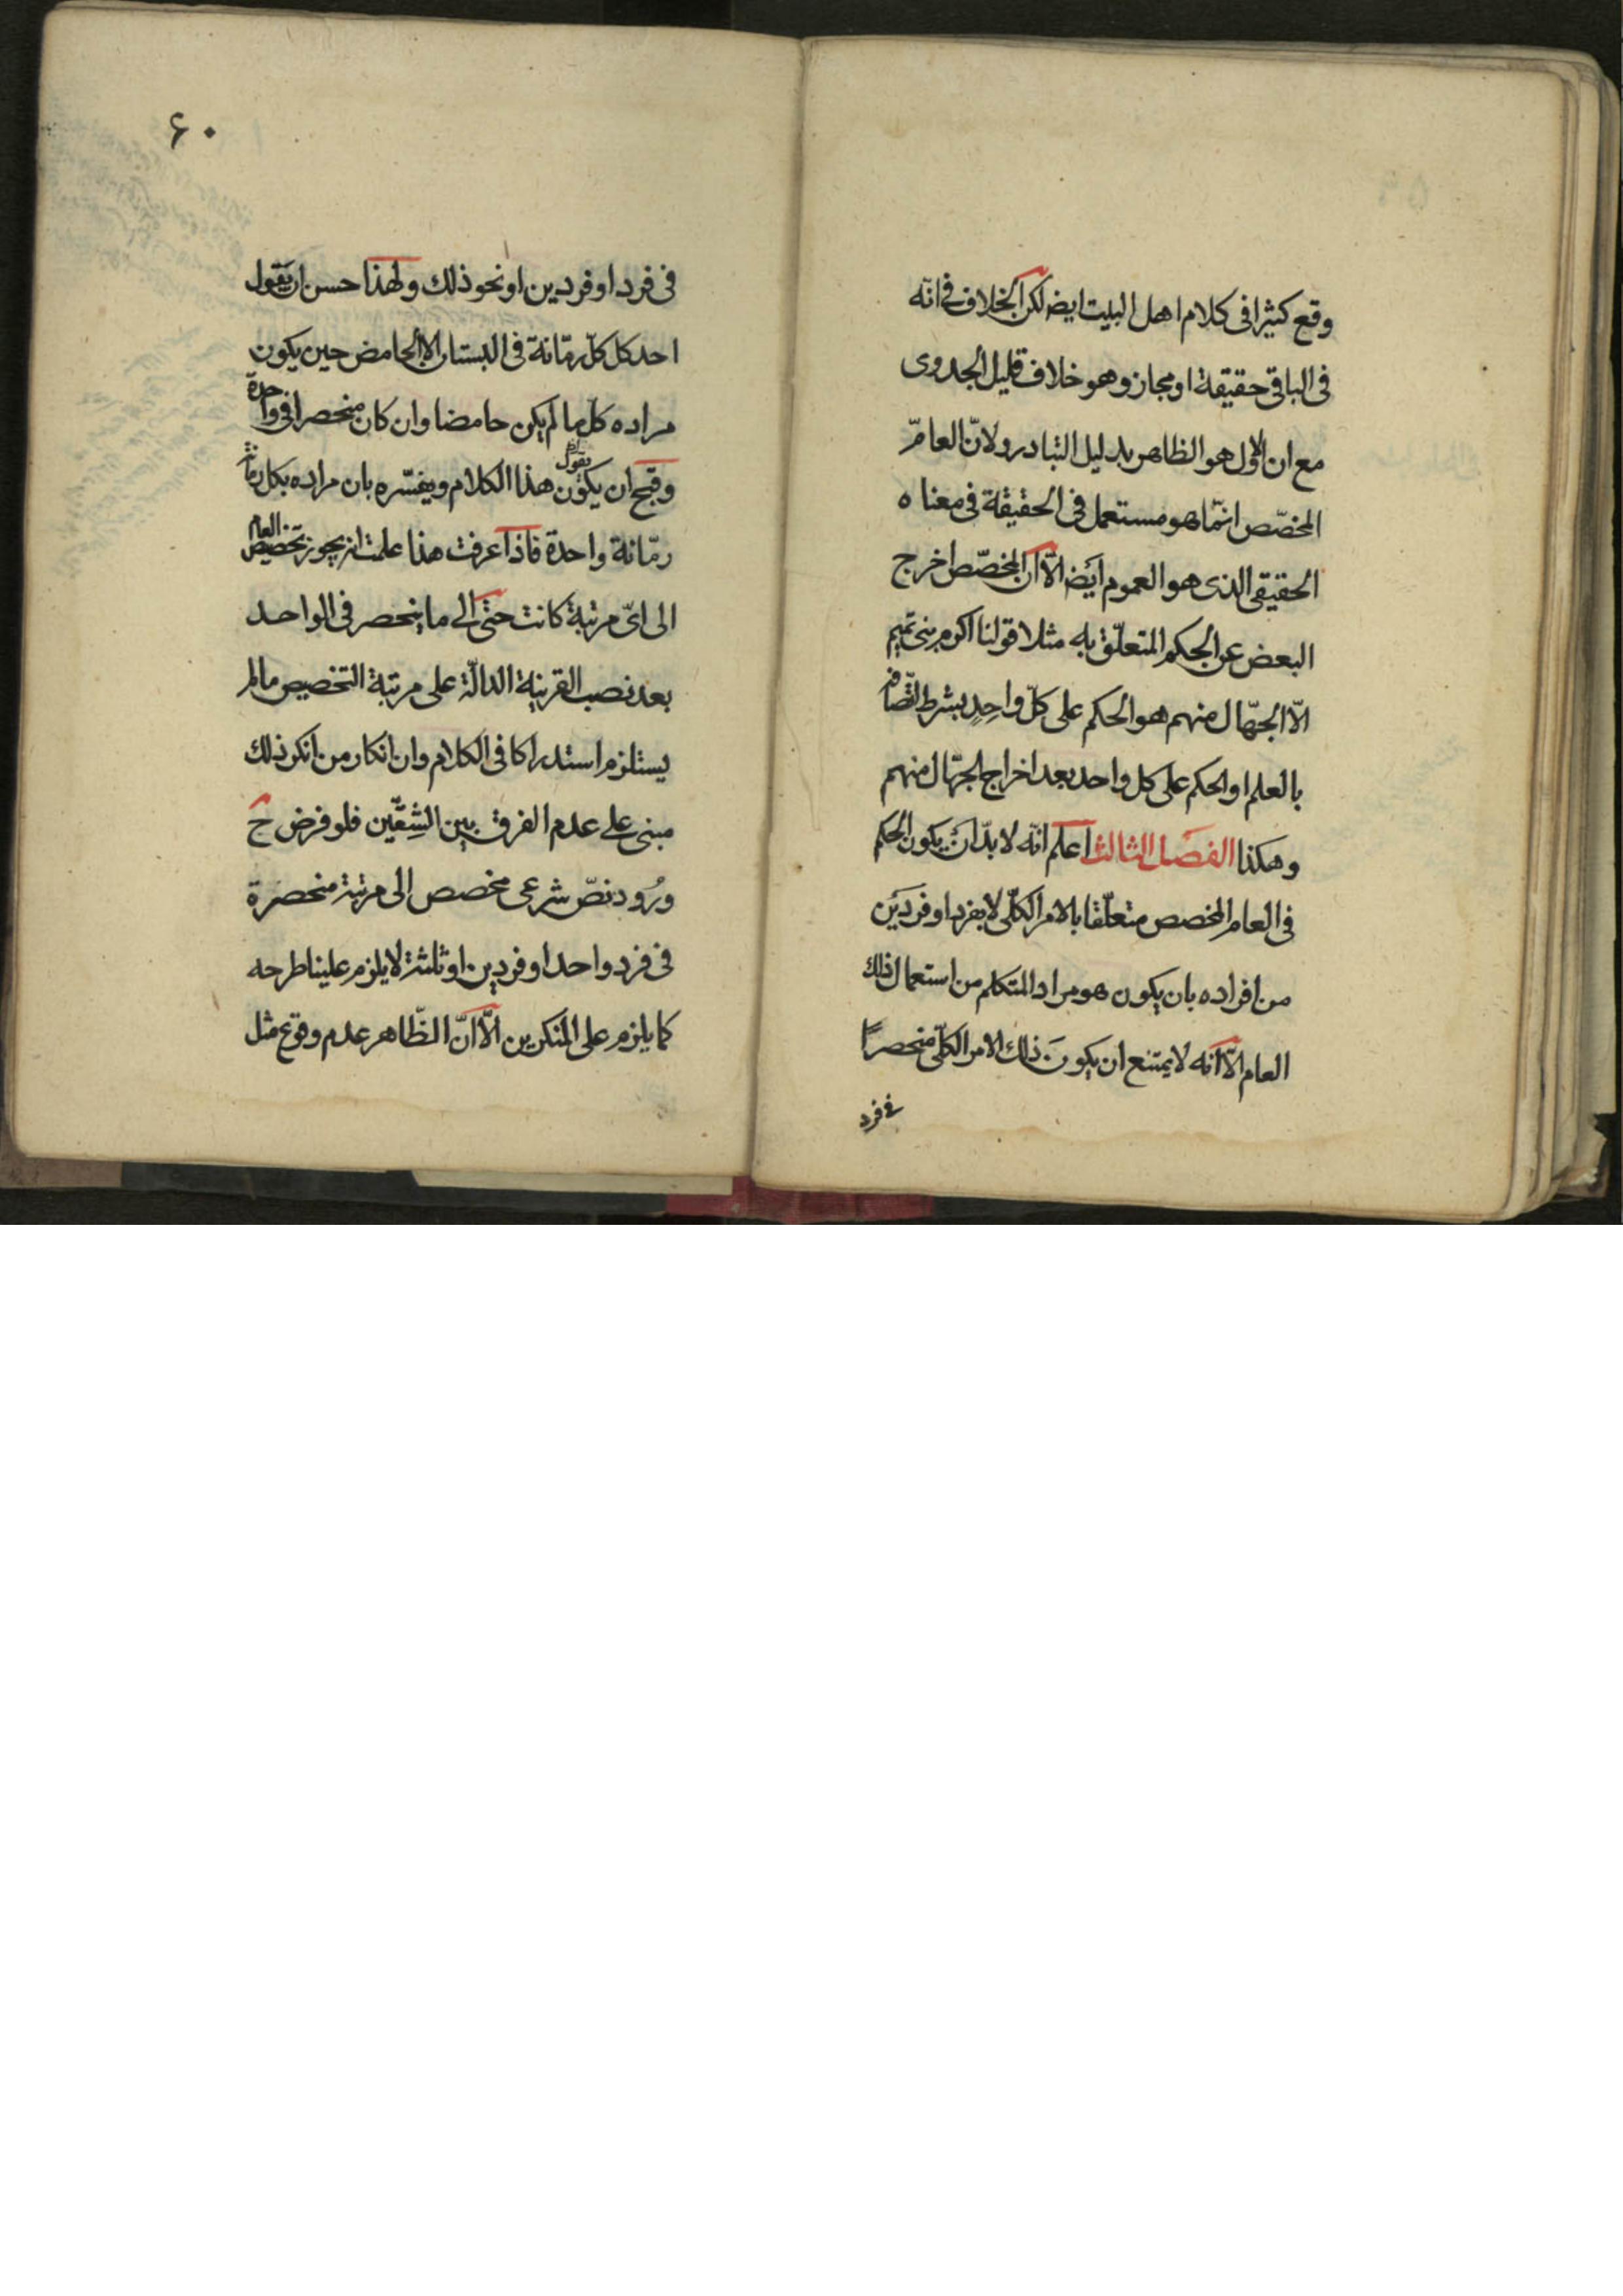 وقع كثيرا فى كلام اهل البيت ايضا لكن الخلاف فى انّه
فى الباقى حقيقة او مجاز وهو خلاف قليل الجدوى
مع ان الاول هو الظاهر بدليل التبادر ولانّ العامّ
المخصّص انّما هو مستعمل فى الحقيقة فى معناه
الحقيقى الذى هو العموم ايضا الّا انّ المخصّص اخرج
البعض عن الحكم المتعلّق به مثلا قولنا اكرم بنى تميم
الّا الجهّال منهم هو الحكم على كلّ واحِدٍ بشرط اتّصافه
بالعلم او الحكم على كل واحد بعد اخراج الجهّال منهم
وهكذا الفصَل الثالث اعلم انّه لا بدّ ان يكون الحكم
فى العام المخصص متعلّقا بالامر الكلّى لا بفرد او فردَين
من افراده بان يكون هو مراد المتكلم من استعمال ذلك
العام الّا انه لا يمتنع ان يكونَ ذلك الامر الكلّى منحصراً
فى فرد
۶۰
فى فرد او فردين او نحو ذلك ولهذا حسن ان يَقول
احد كل كلّ رمّانة فى البستان الا الحامض حين يكون
مراده كلّ ما لم يكن حامضا وان كان منحصرا فى واحدة
وقبح ان يكون يقول هذا الكلام ويفسّره بان مراده بكل رمانة
رمّانة واحدة فاذا عرفت هذا علمت انه يجوز تخصيص العام
الى اىّ مرتبة كانت حتى الى ما ينحصر فى الواحد
بعد نصب القرينة الدالّة على مرتبة التخصيص ما لم
يستلزم استدراكا فى الكلام وان انكار من انكر ذلك
مبنى على عدم الفرق بين الشِقّين فلو فرض ح
ورُود نصّ شرعى مخصص الى مرتبة منحصَرة
فى فرد واحد او فردين او ثلثة لا يلزم علينا طرحه
كما يلزم على المنكرين الّا انّ الظّاهر عدم وقوع مثل